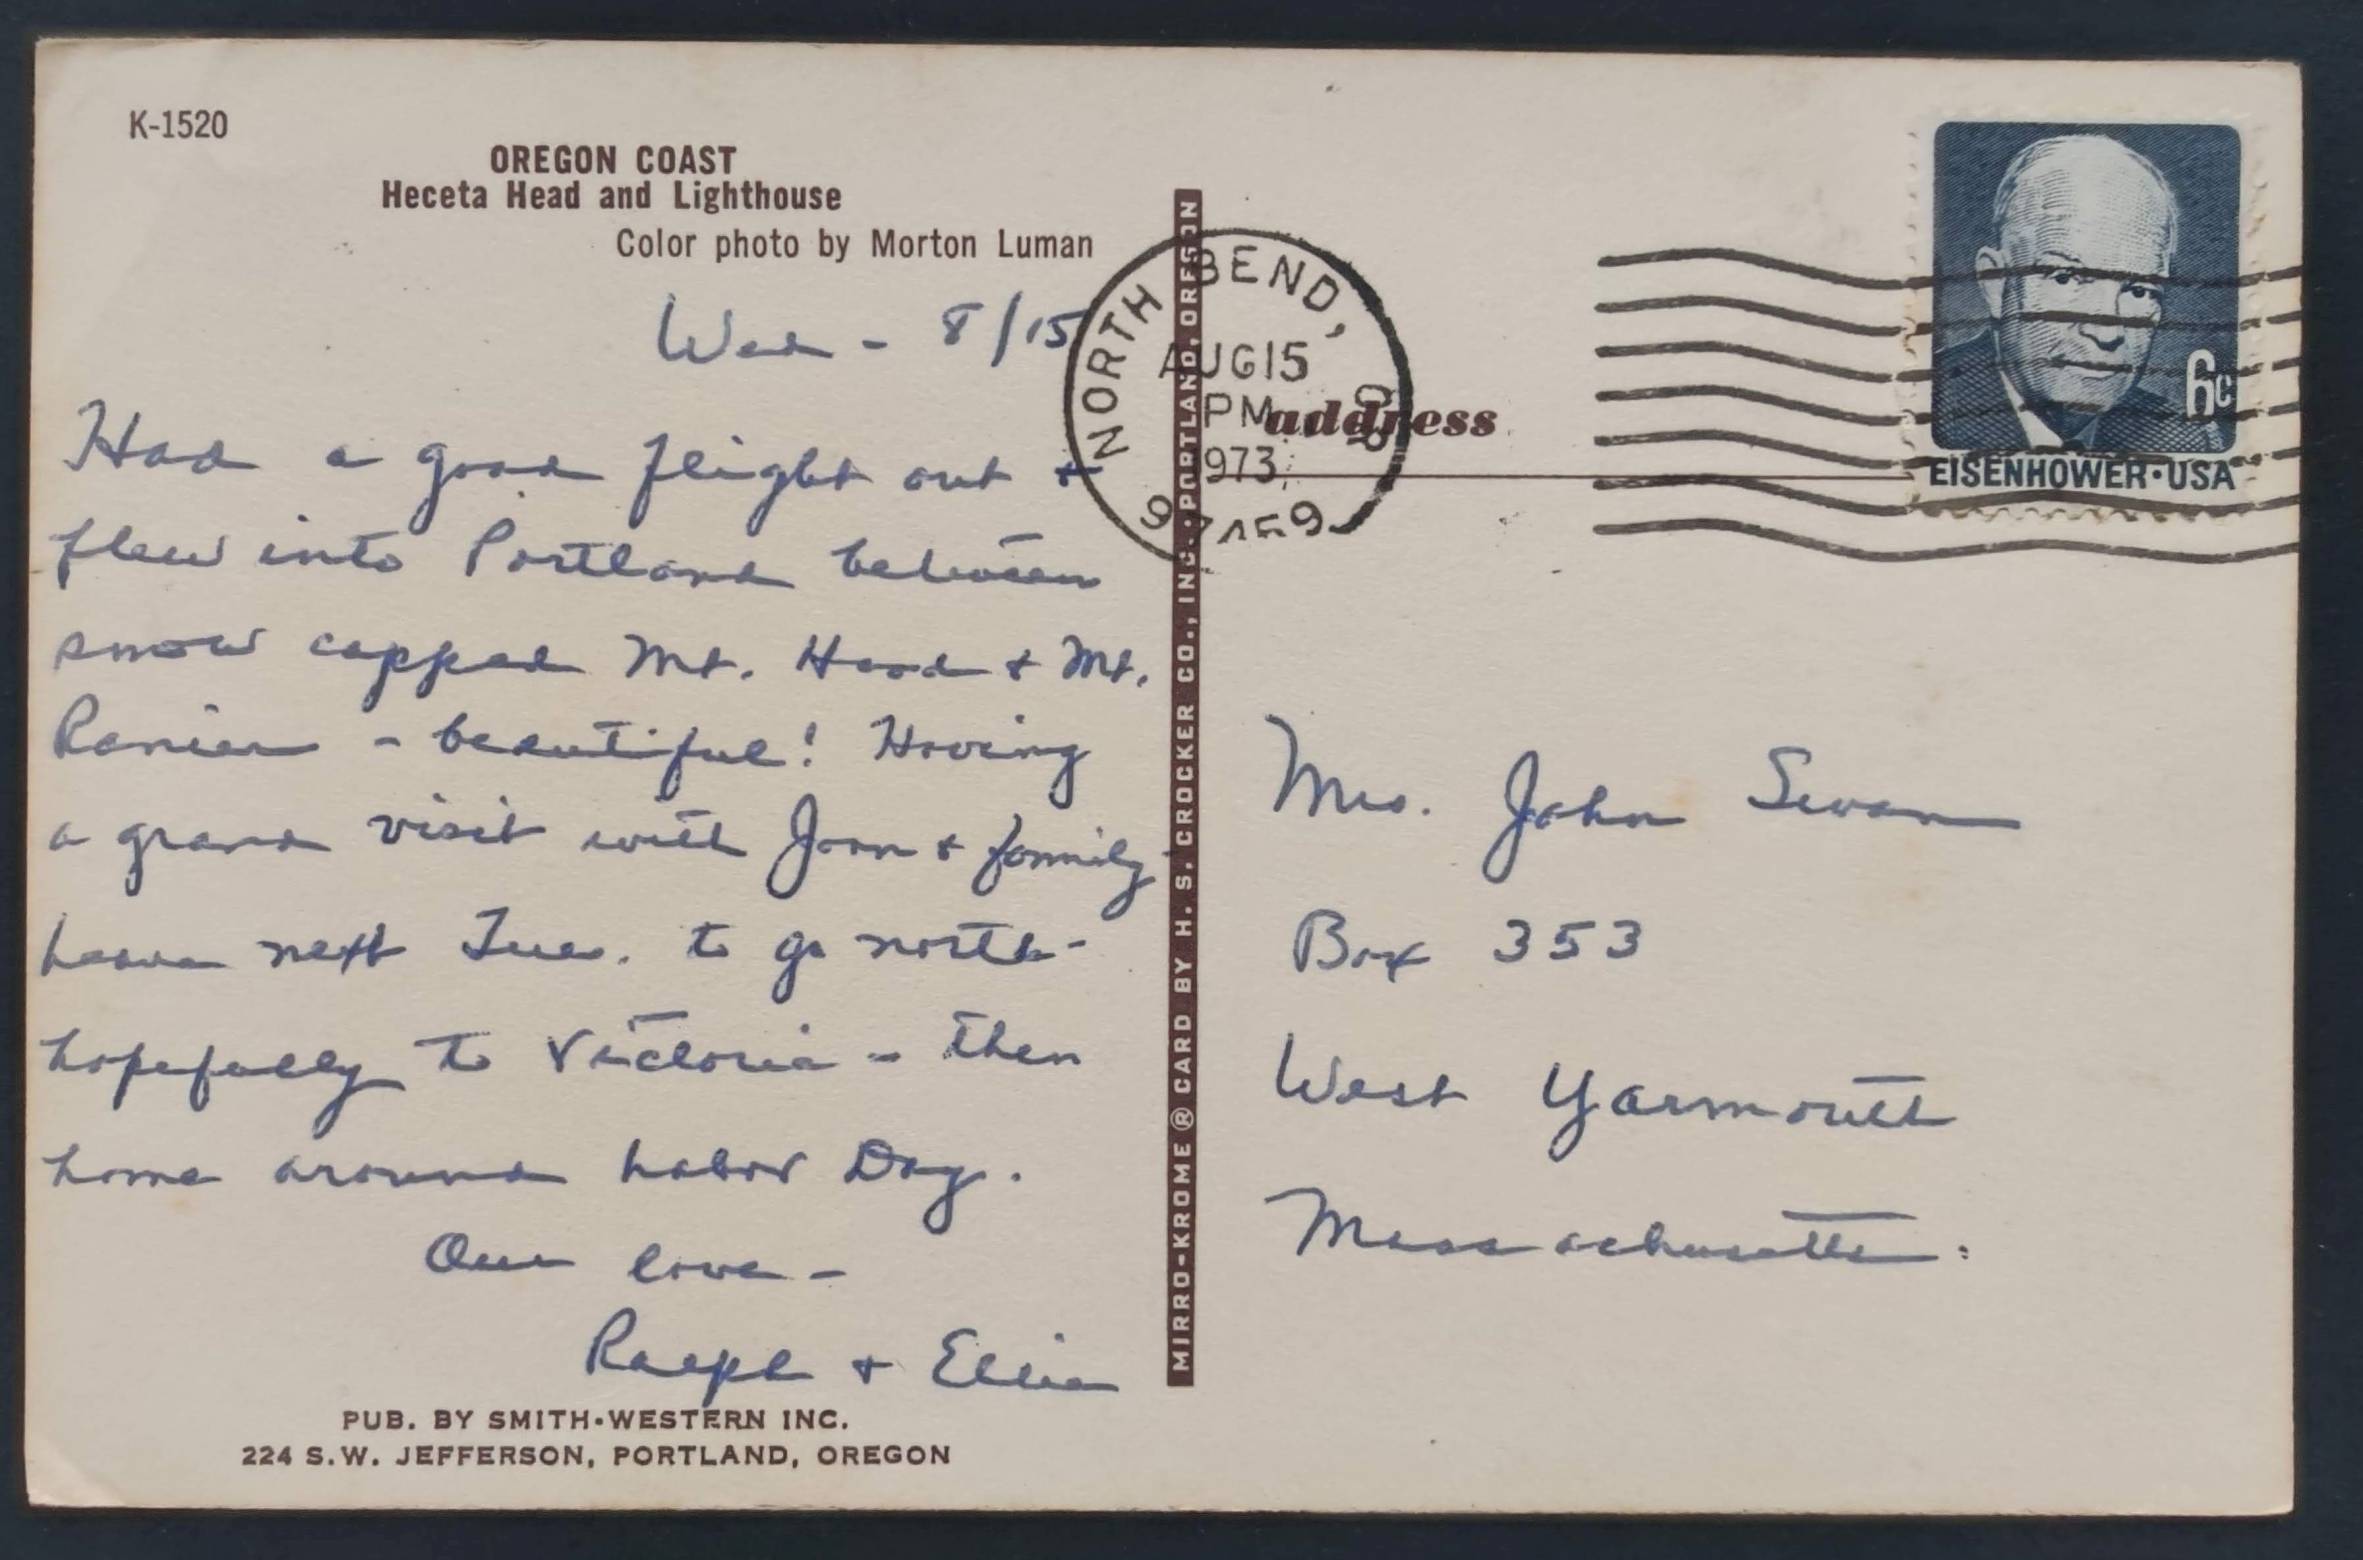 K-1520
OREGON COAST
Heceta Head and Lighthouse
Color photo by Morton Luman
Wed - 8/15
Had a good flight out +
flew into Portland between
snow capped Mt. Hood + Mt.
Ranier - beautiful! Having
a grand visit with Joan + family -
leave next Tues. to go north -
hopefully to Victoria - then
home around Labor Day.
Our love -
Ralph + Ellie
PUB. BY SMITH-WESTERN INC.
224 S.W. JEFFERSON, PORTLAND, OREGON
MIRRO-KROME ® CARD BY H. S. CROCKER CO., INC. • PORTLAND, OREGON
NORTH BEND, OR
AUG 15
PM
1973
97459
address
6c
EISENHOWER·USA
Mrs. John Swan
Box 353
West Yarmouth
Massachusetts.